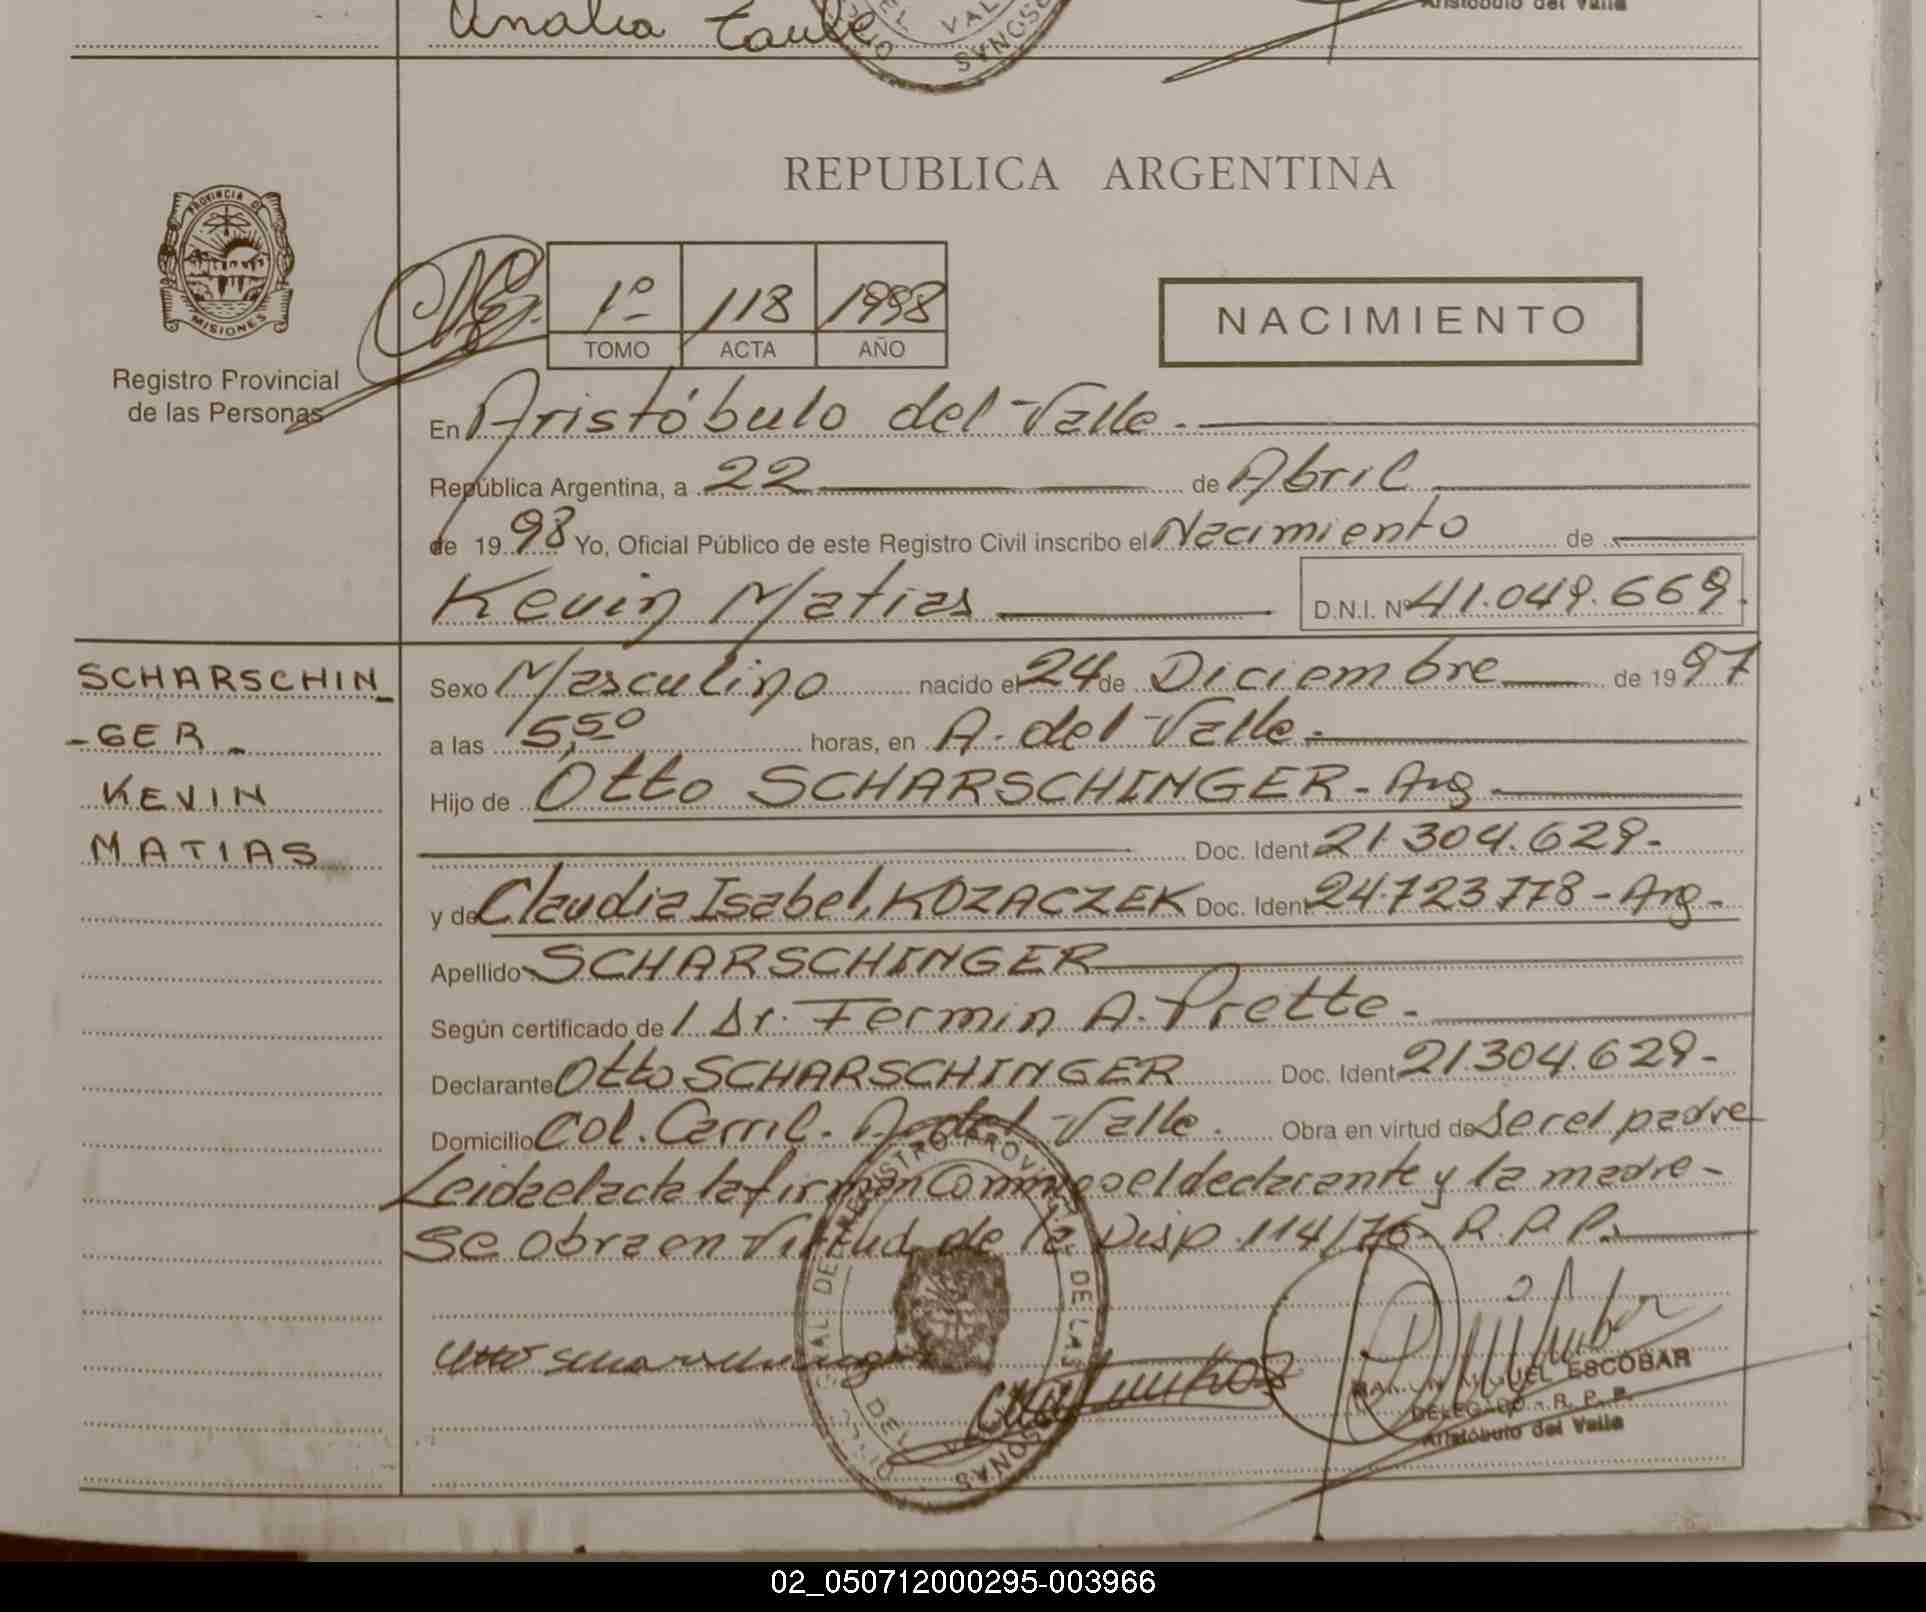 Analia
DEL VALLE
PERSONAS
Aristóbulo del Valle
REPUBLICA ARGENTINA
PROVINCIA DE
MISIONES
Registro Provincial
de las Personas
1º 118 1998
TOMO ACTA AÑO
NACIMIENTO
En Aristóbulo del Valle.
República Argentina, a 22 de Abril
de 1998 Yo, Oficial Público de este Registro Civil inscribo el Nacimiento de
Kevin Matias D.N.I. Nº 41.049.669.
SCHARSCHIN_
-GER_
KEVIN
MATIAS
Sexo Masculino nacido el 24 de Diciembre de 1997
a las 5,50 horas, en A. del Valle.
Hijo de Otto SCHARSCHINGER - Arg
Doc. Ident 21.304.629-
y de Claudia Isabel, KOZACZEK Doc. Ident 24.723.778 - Arg-
Apellido SCHARSCHINGER
Según certificado de / Dr. Fermin A. Prette.
Declarante Otto SCHARSCHINGER Doc. Ident 21.304.629-
Domicilio Col. Carril. A. del Valle. Obra en virtud de Ser el padre
Leida el acta la firman Conmigo el declarante y la madre-
Se obra en Virtud de la Disp. 114/76- R.P.P.
REGISTRO PROVINCIAL DE LAS PERSONAS
DEL VALLE
RAMON MIGUEL ESCOBAR
DELEGADO - R. P. P.
Aristóbulo del Valle
02_050712000295-003966